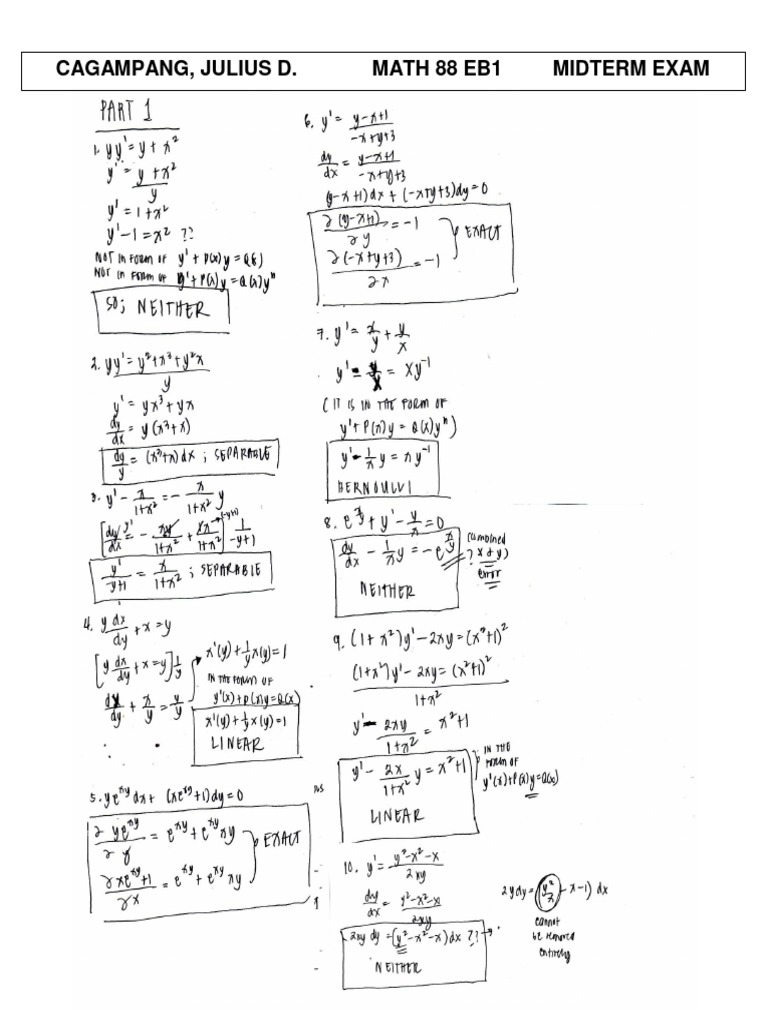 CAGAMPANG, JULIUS D. MATH 88 EB1 MIDTERM EXAM
PART 1
1. yy' = y + x²
y' = y + x² / y
y' = 1 + x²
y' - 1 = x² ??
NOT IN FORM OF y' + P(x)y = Q(x)
NOT IN FORM OF y' + P(x)y = Q(x)yⁿ
SO; NEITHER
2. yy' = y² + x³ + y²x / y
y' = yx³ + yx
dy/dx = y(x³ + x)
dy/y = (x³ + x)dx ; SEPARABLE
3. y' - x/1+x² = - x/1+x² y
[dy/dx = - xy/1+x² + x/1+x²] 1/-y+1
(-y+1)
y'/y+1 = x/1+x² ; SEPARABLE
4. y dx/dy + x = y
[y dx/dy + x = y] 1/y
dx/dy + x/y = y/y
x'(y) + 1/y x(y) = 1
IN THE FORM OF
y'(x) + P(x)y = Q(x)
x'(y) + 1/y x(y) = 1
LINEAR
5. ye^xy dx + (xe^xy + 1)dy = 0
∂ ye^xy / ∂y = e^xy + e^xy xy
∂xe^xy + 1 / ∂x = e^xy + e^xy xy
EXACT
6. y' = y-x+1 / -x+y+3
dy/dx = y-x+1 / -x+y+3
(y-x+1)dx + (-x+y+3)dy = 0
∂(y-x+1) / ∂y = -1
∂(-x+y+3) / ∂x = -1
EXACT
7. y' = x/y + y/x
y' - y/x = xy⁻¹
(IT IS IN THE FORM OF
y' + P(x)y = Q(x)yⁿ)
y' - 1/x y = xy⁻¹
BERNOULLI
8. e^x/y + y' - y/x = 0
dy/dx - 1/x y = -e^x/y
? (combined
x & y)
error
NEITHER
9. (1+x²)y' - 2xy = (x²+1)²
(1+x²)y' - 2xy = (x²+1)²
1+x²
y' - 2xy/1+x² = x²+1
y' - 2x/1+x² y = x²+1
IN THE
FORM OF
y'(x) + P(x)y = Q(x)
LINEAR
10. y' = y²-x²-x / 2xy
dy/dx = y²-x²-x / 2xy
2xy dy = (y²-x²-x)dx ??
NEITHER
2y dy = (y²/x - x - 1) dx
cannot
be removed
entirely